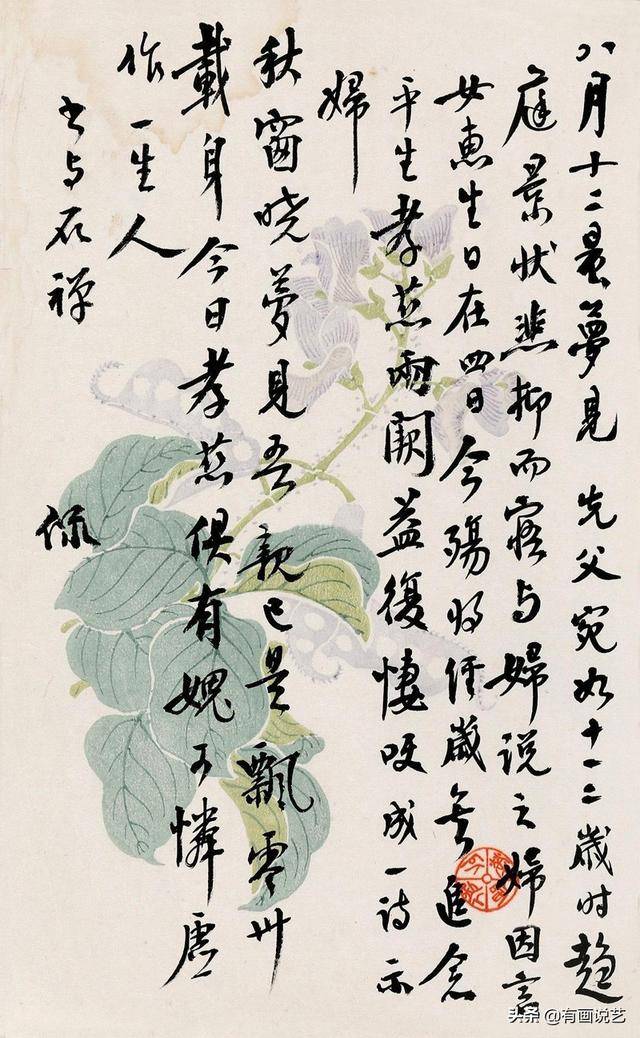 八月十二晨夢見 先父宛如十一二歲时趨
庭景状悲抑而寤与婦说之婦因言
女惠生日在四日今殤将歲矣追念
平生孝慈兩闕益復悽哽成一诗示
婦
秋窗晓夢見吾親已是飄零卅
載身今日孝慈俱有媿可憐虚
作一生人
书与石禅
侃
头条 @有画说艺